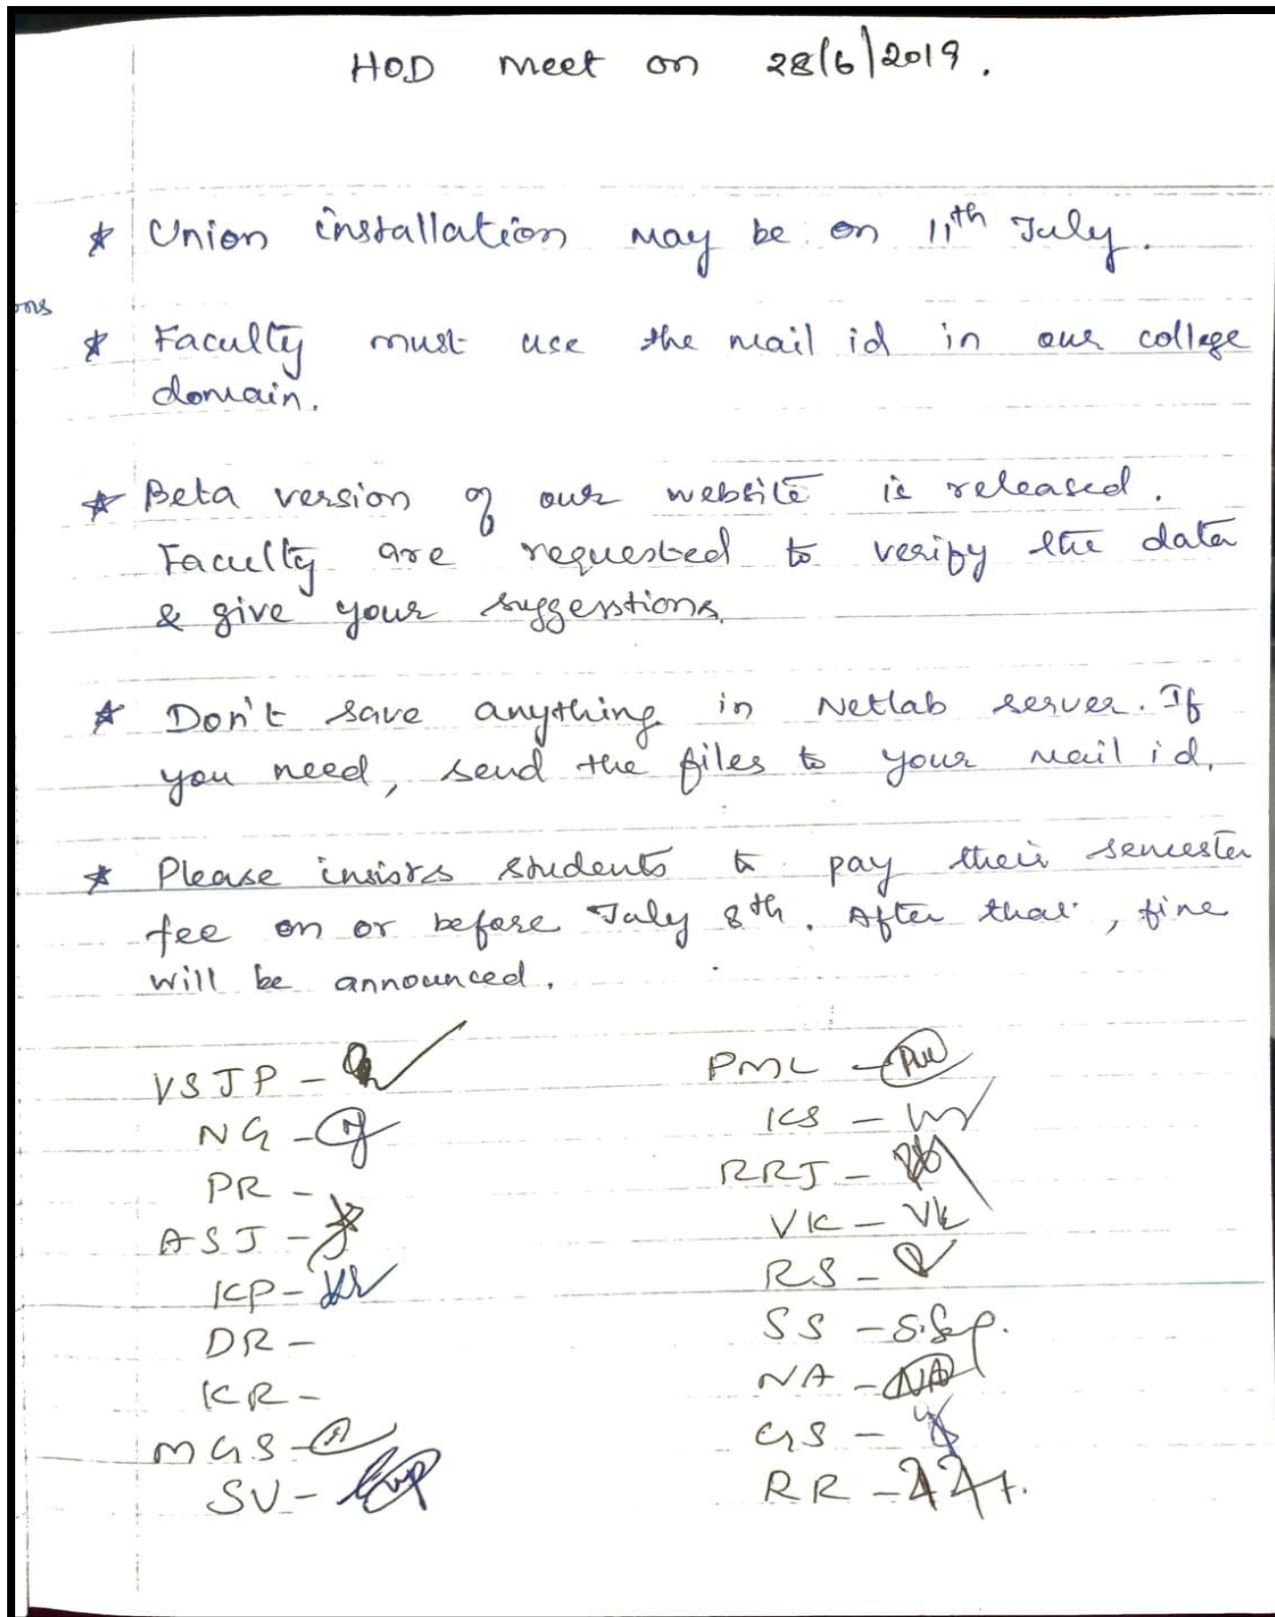 HOD meet on 28/6/2019.
* Union installation may be on 11th July.
ons
* Faculty must use the mail id in our college
domain.
* Beta version of our website is released.
Faculty are requested to verify the data
& give your suggesstions.
* Don't save anything in Netlab server. If
you need, send the files to your mail id.
* Please insists students to pay their semester
fee on or before July 8th. After that, fine
will be announced.
VSJP -
NG -
PR -
ASJ -
KP -
DR -
KR -
MGS -
SV -
PML -
KS -
RRJ -
VK - VK
RS -
SS -
NA - NA
GS -
RR -